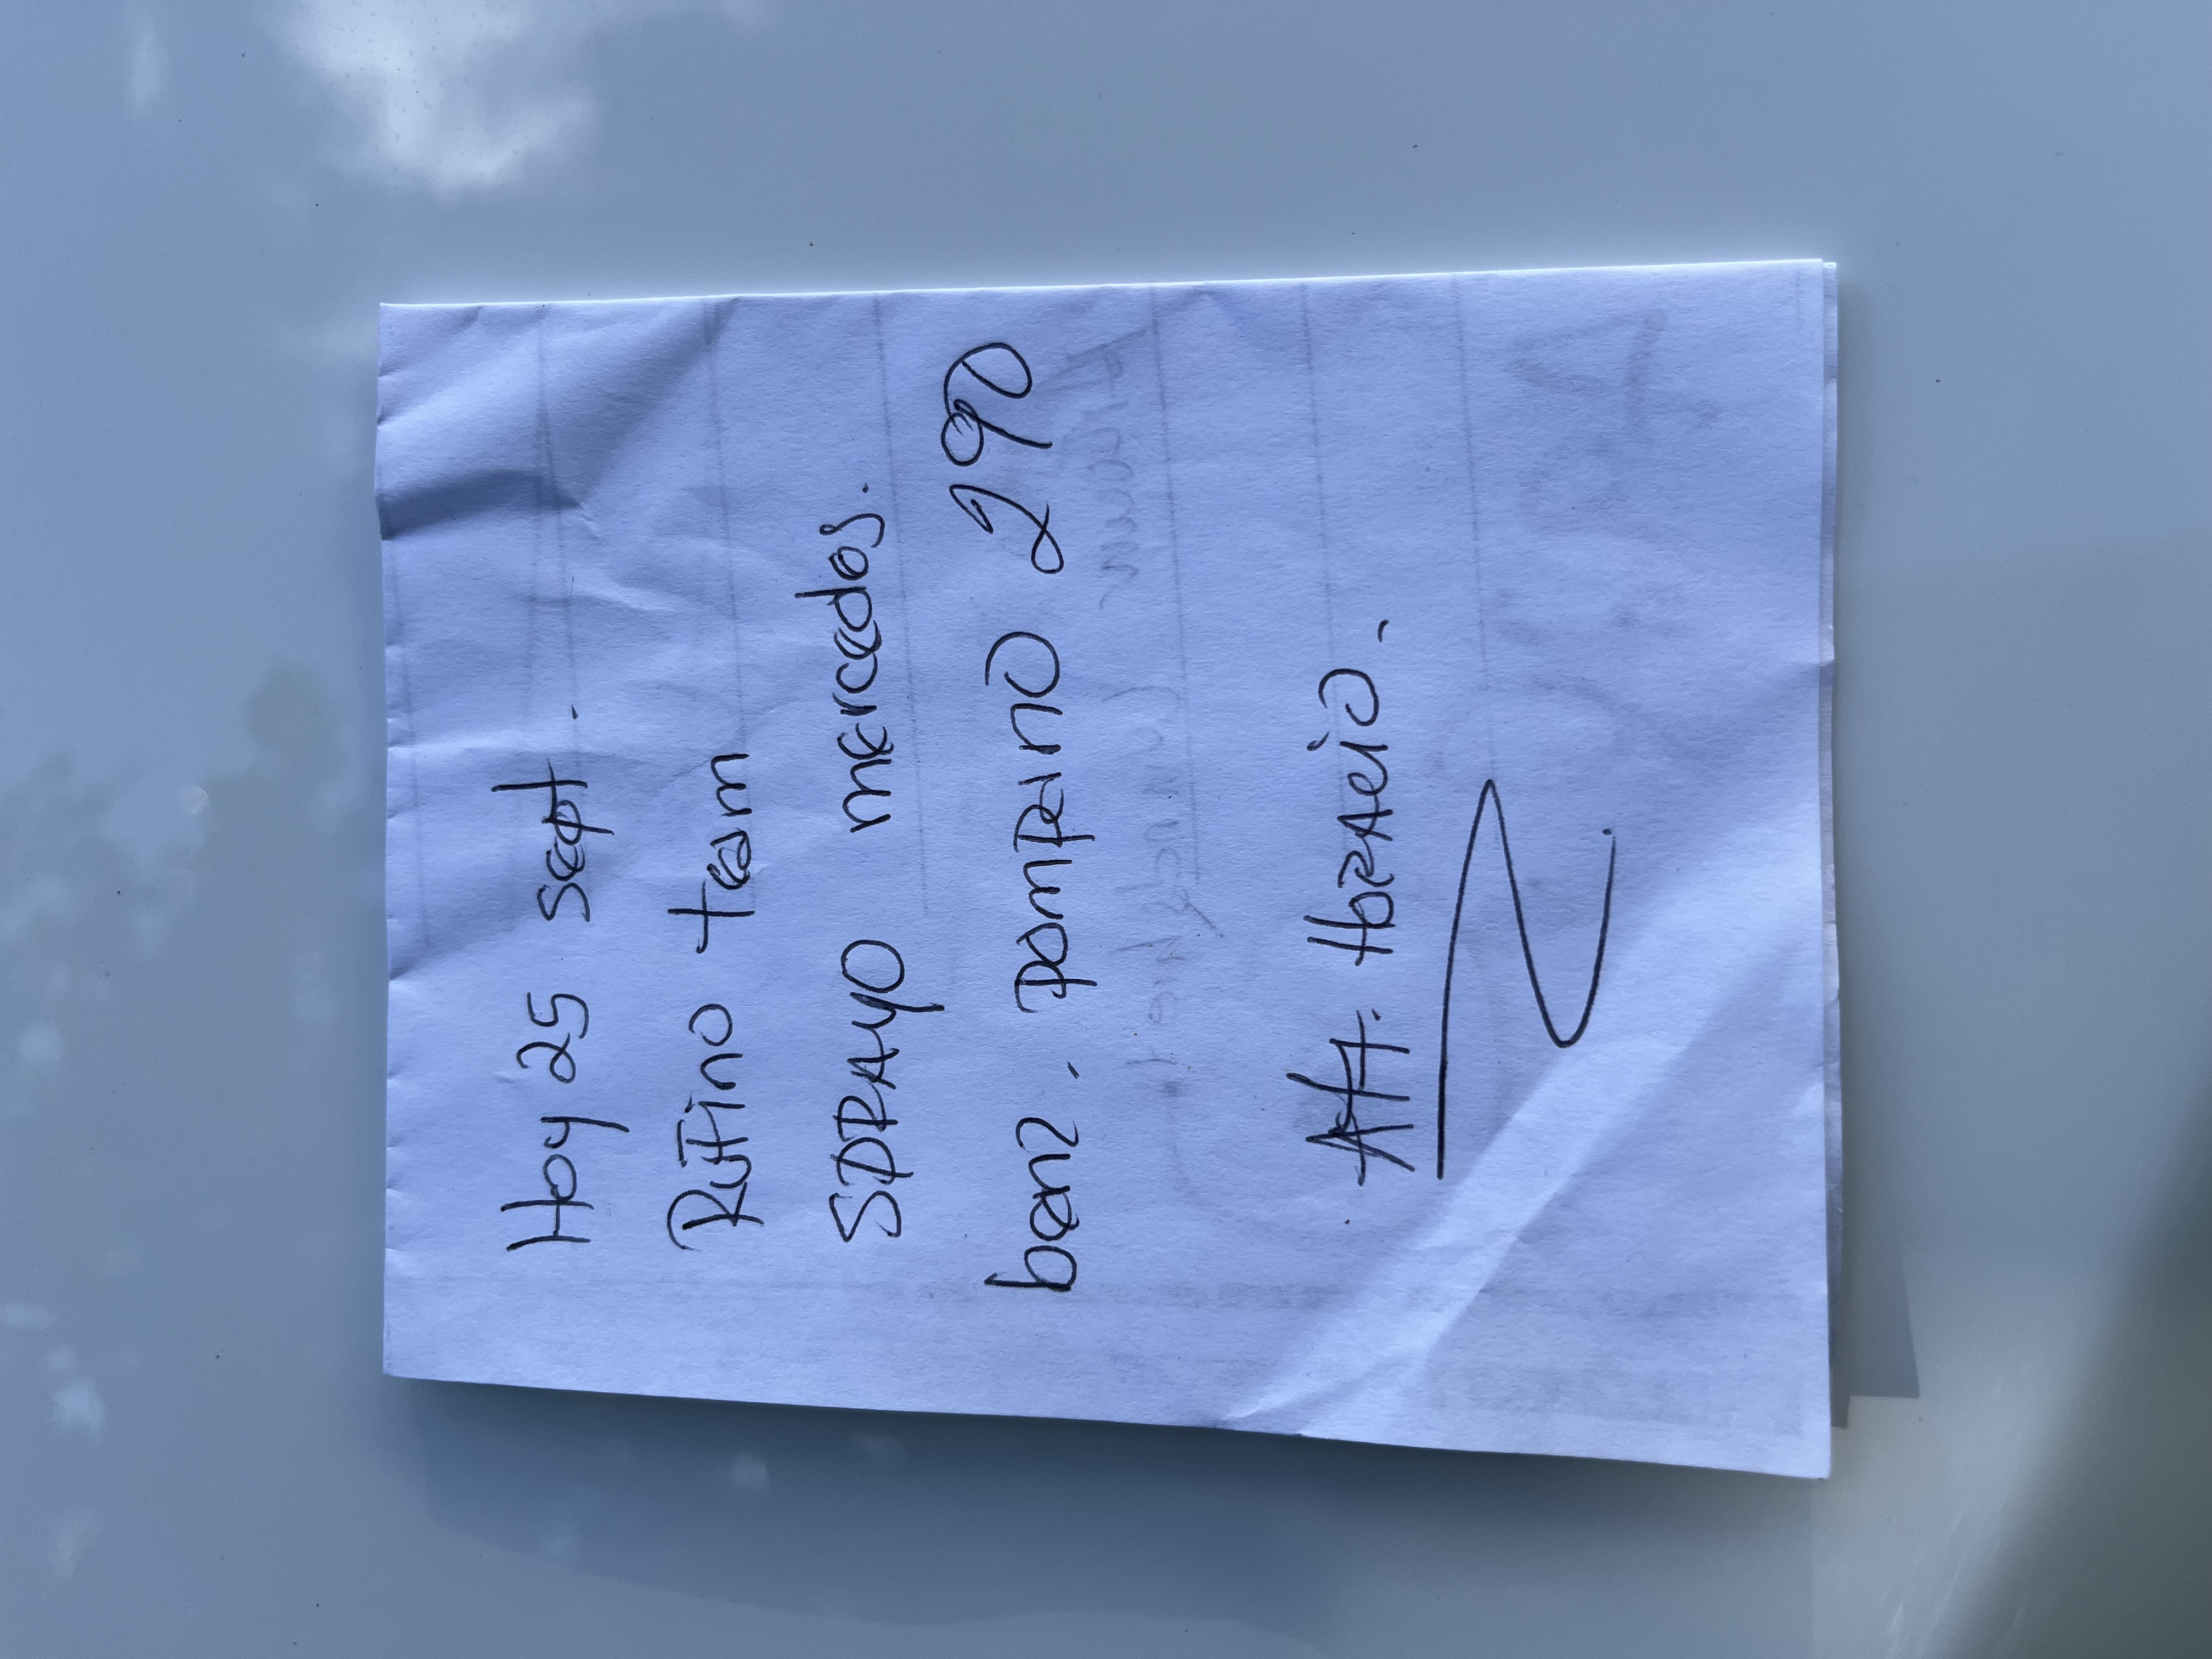 Hoy 25 sept.
Rufino team
SPRAYO mercedes.
benz. pompano 290
Att: HORACIO.